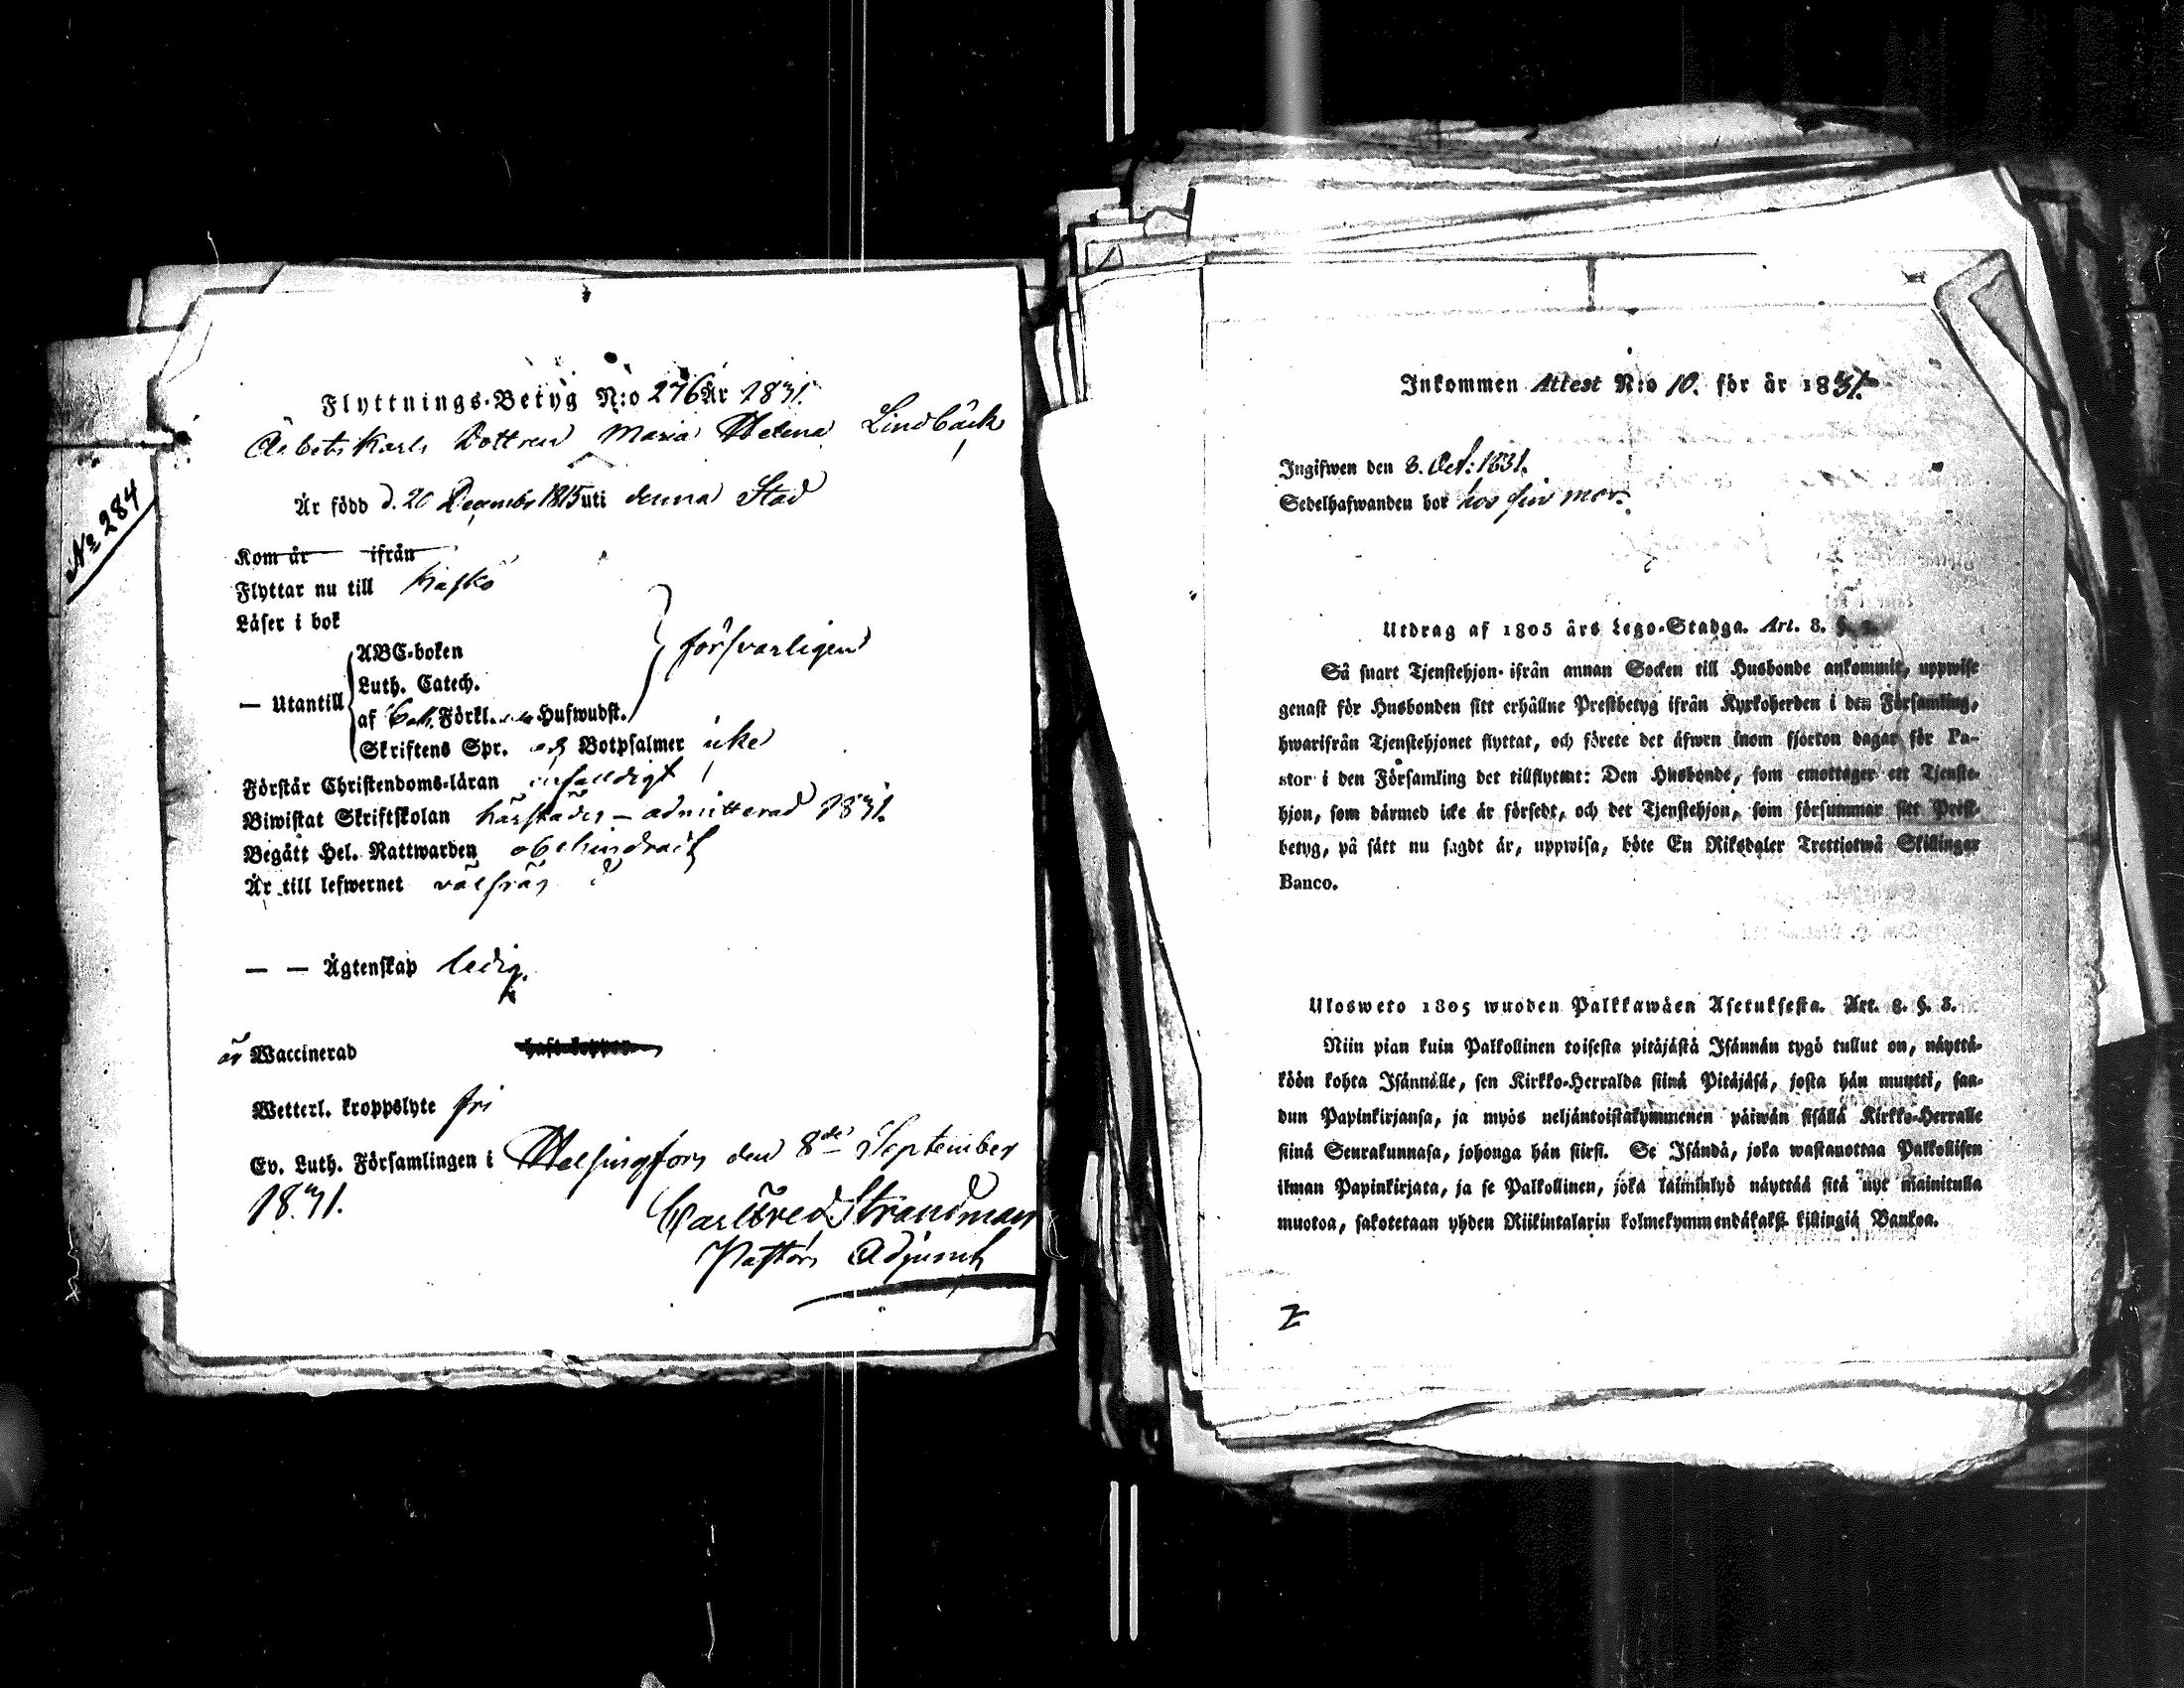 Flyttnings-Betyg N:o 276 År 1831.
Arbets Karls Dottren Maria Helena Lindbäck
Är född d. 20 Decembr 1815 uti denna Stad
No 284
Kom år ifrån
Flyttar nu till Kaskö
Läser i bok
ABC-boken
Luth. Catech.
försvarligen
— Utantill
af Cat. Förkl. Hufwudst.
Skriftens Spr. och Botpsalmer icke
Förstår Christendoms-läran enfaldigt
Biwistat Skriftskolan härstädes – admitterad 1831.
Begått Hel. Nattwarden obehindrad
Är till lefwernet välfräg
— — Ägtenskap ledig.
är Waccinerad haft koppor
Wetterl. kroppslyte fri
Ev. Luth. Församlingen i Helsingfors den 8de September
1831.
Carl Fred Strandman
Pastors Adjunct
Inkommen Attest N:o 10. för år 1831.
Ingifwen den 8. Oct: 1831.
Sedelhafwanden bor hos sin mor.
Utdrag af 1805 års Lego-Stadga. Art. 8. §.
Så snart Tjenstehjon ifrån annan Socken till Husbonde ankommit, uppwise
genast för Husbonden sitt erhållne Prestbetyg ifrån Kyrkoherden i den Församling,
hwarifrån Tjenstehjonet flyttat, och förete det äfwen inom fjorton dagar för Pa-
stor i den Församling det tillflyttat: Den Husbonde, som emottager ett Tjenste-
hjon, som därmed icke är försedt, och det Tjenstehjon, som försummar sitt Prest-
betyg, på sätt nu sagdt är, uppwisa, böte En Riksdaler Trettiotwå Skillingar
Banco.
Ulosweto 1805 wuoden Palkkawäen Asetuksesta. Art. 8. §. 8.
Niin pian kuin Palkollinen toisesta pitäjästä Isännän tygö tullut on, näyttä-
köön kohta Isännälle, sen Kirkko-Herralda siinä Pitäjäsä, josta hän muutti, saa-
dun Papinkirjansa, ja myös neljäntoistakymmenen päiwän sisällä Kirkko-Herralle
siinä Seurakunnasa, johonga hän siirsi. Se Isändä, joka wastanottaa Palkollisen
ilman Papinkirjata, ja se Palkollinen, joka laiminlyö näyttää sitä nyt mainitulla
muotoa, sakotetaan yhden Riikintalarin kolmekymmendäkaksi killingiä Bankoa.